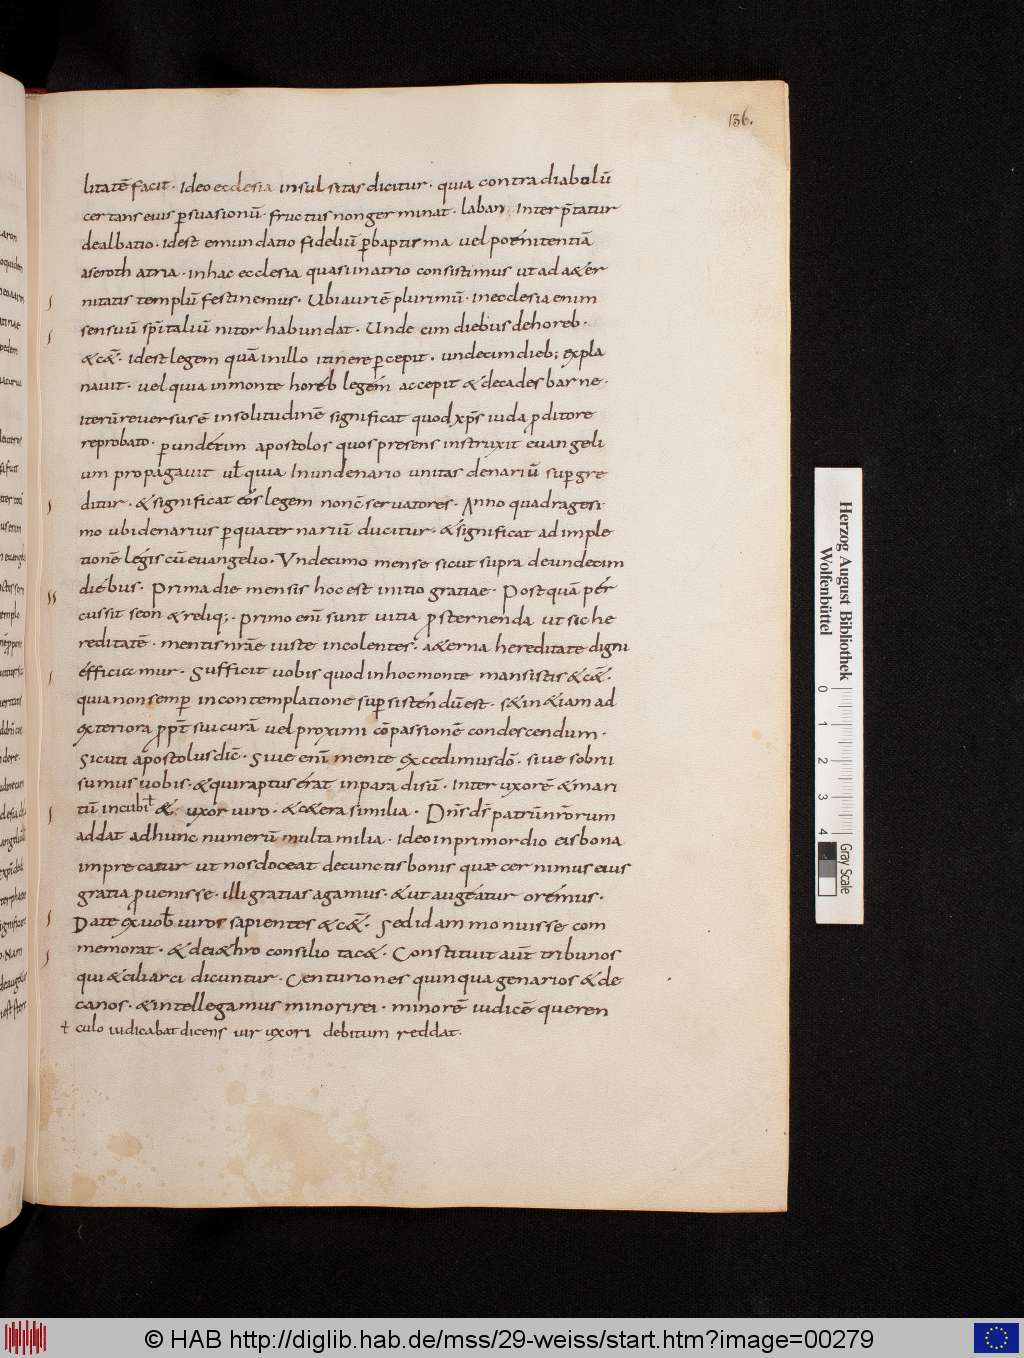 136.
litatē facit · Ideo ecclesia insul sitas dicitur · quia contra diabolū
certans eius p̱suasionū · fructus non germinat · laban Inter p̄tatur
dealbatio · idest emundatio fideliū p̱baptisma vel poenitentiā
aseroth atria · in hac ecclesia quasi in atrio consistimus ut ad a&er
nitatis templū festinemus · Ubi auriē plurimū · in ecclesia enim
sensuū sp̄italiū nitor habundat · Unde cim diebus de horeb ·
& cǣ · idest legem quā in illo itinere p̱cepit · undecim dieb; expla
nauit · vel quia in monte horéb legém accepit & décades barne ·
iterū reuersus ē in solitudinē significat quod xp̄s iuda p̱ditore
reprobato · p̱ undécim apostolos quos presens instruxit euangeli
um propagauit ul̄ quia In undenario unitas denariū sup̱gre
ditur · & significat eós legem non c̄seruatores · Anno quadragesi
mo ubi denarius p̱quater nariū ducitur · & significat ad imple
tionē légis cū euangelio · Undecimo mense sicut supra de undecim
diébus · Prima die mensis hoc est initio gratiae · Postquā pér
cussit seon & reliq; · primo enī sunt uitia p̱sternenda ut sic he
reditatē · mentis nr̄ae iuste incolentes · a&erna hereditate digni
éfficiamur · Sufficit uobis quod in hoc monte mansistis & cǣ ·
quia non semp̱ in contemplatione sup̱sisténdū est · s& in &iam ad
exteriora p̱pt̄ sui curā vel proximi cōpassionē condescendum ·
Sicuti apostolus dic̄ · Siue enī mente excedimus dō · siue sobrii
sumus uobis · & qui raptus érat in paradisū · Inter uxorē & mari
tū incubit &; uxor uiro · & c&era similia · Dn̄s ds̄ patrū nr̄orum
addat ad hunc numerū multa milia · Ideo in primordio eis bona
imprecatur ut nos doceat de cunctis bonis quæ cernimus eius
gratia p̱uenisse · illi gratias agamus · & ut augeátur orémus ·
Date ex uob̄ uiros sapientes & cǣ · Sed id ammonuisse com
memorat · & de i&hro consilio tac& · Constituit aut̄ tribunos
qui & ciliarci dicuntur · Centuriones quinquagenarios & de
canos · & intellegamus minori rei · minorē iudicē queren
culo iudicabat dicens uir uxori debitum reddat ·
Herzog August Bibliothek
Wolfenbüttel
0 1 2 3 4
Gray Scale
© HAB http://diglib.hab.de/mss/29-weiss/start.htm?image=00279